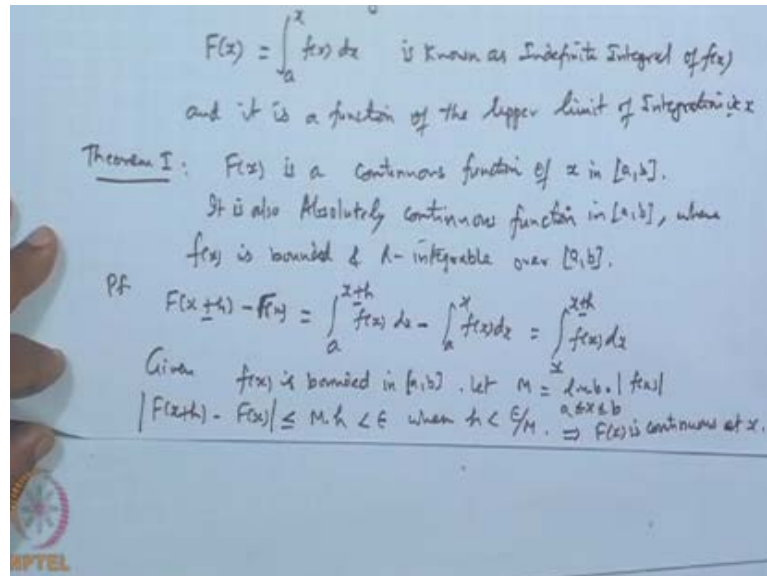 F(x) = ∫_a^x f(x) dx is known as Indefinite Integral of f(x)
and it is a function of the upper limit of Integration i.e. x
Theorem I : F(x) is a continuous function of x in [a,b].
It is also Absolutely continuous function in [a,b], where
f(x) is bounded & R-integrable over [a,b].
Pf F(x±h) - F(x) = ∫_a^{x±h} f(x) dx - ∫_a^x f(x) dx = ∫_x^{x±h} f(x) dx
Given f(x) is bounded in [a,b]. Let M = l.u.b. |f(x)|
a≤x≤b
|F(x+h) - F(x)| ≤ M.h < ε when h < ε/M. ⇒ F(x) is continuous at x.
NPTEL